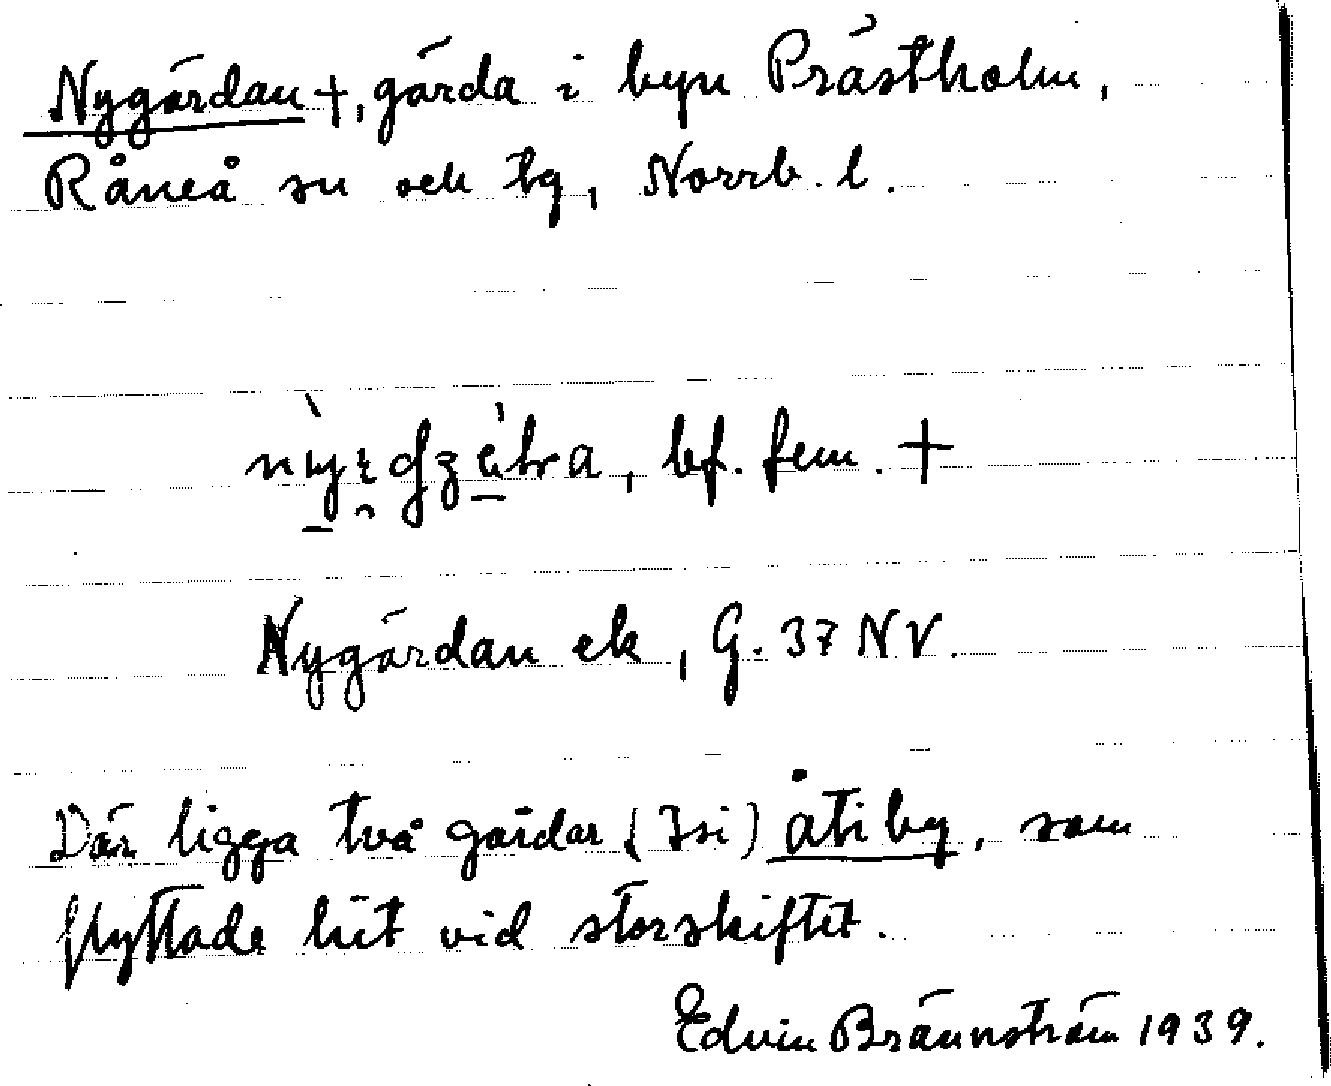 Nygärdan +, gärda i byn Prästholm,
Råneå sn och tg, Norrb. l.
bf. fem. +
Nygärdan ek, G. 37 NV.
Där ligga två gårdar (Isi) åti by, som
flyttade hit vid storskiftet.
Edvin Brännström 1939.